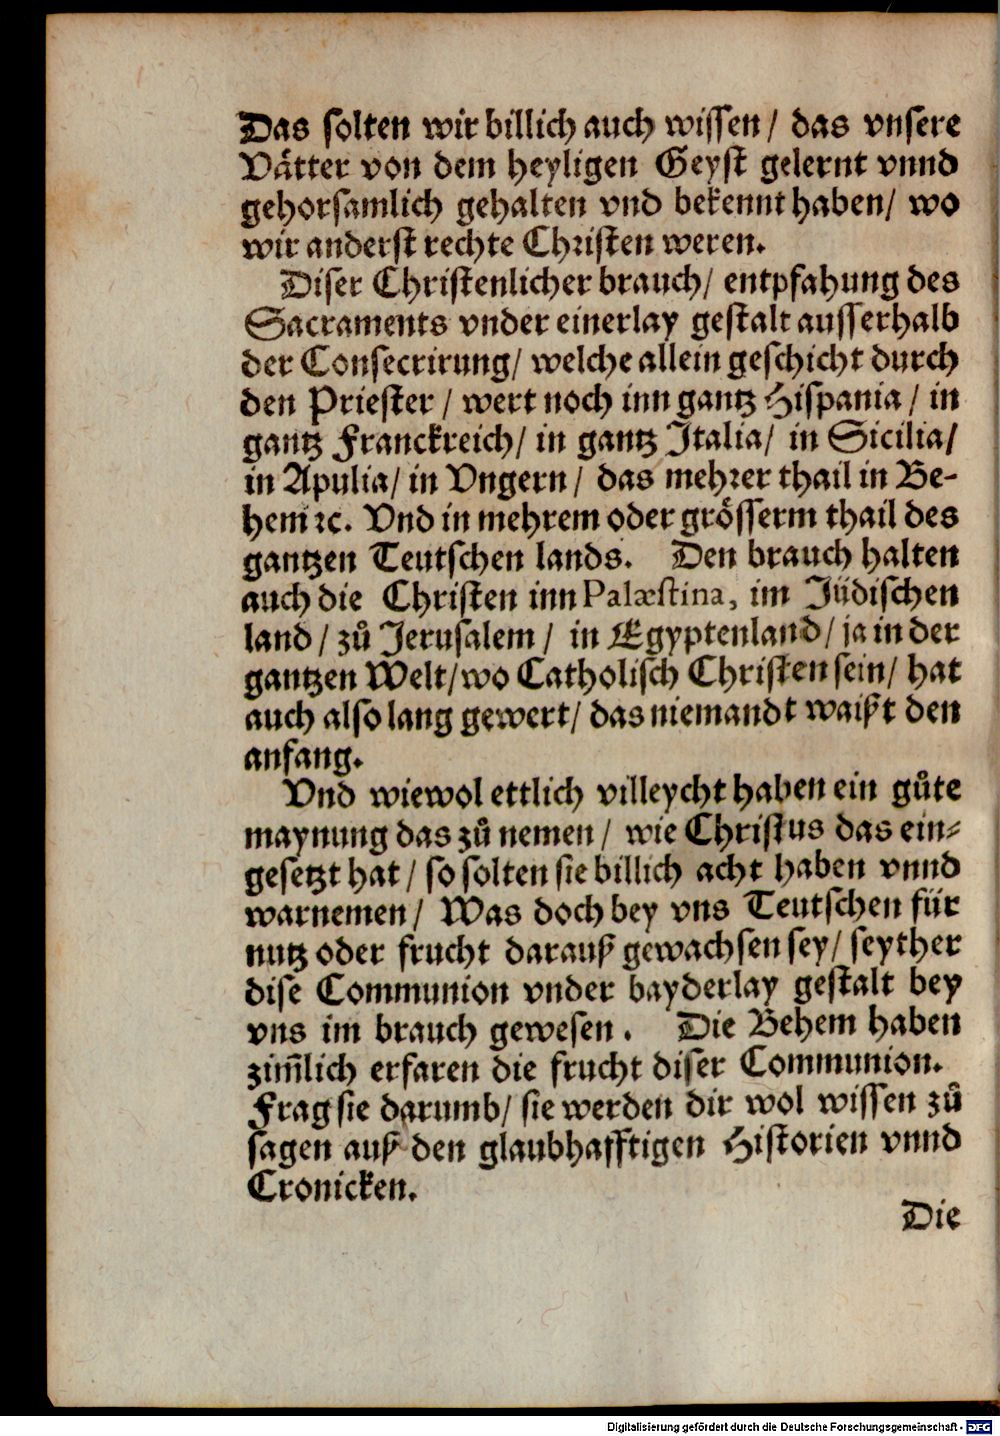 Das solten wir billich auch wissen/ das vnsere
Vaͤtter von dem heyligen Geyst gelernt vnnd
gehorsamlich gehalten vnd bekennt haben/ wo
wir anderst rechte Christen weren.
Diser Christenlicher brauch/ entpfahung des
Sacraments vnder einerlay gestalt ausserhalb
der Consecrirung/ welche allein geschicht durch
den Priester/ wert noch inn gantz Hispania/ in
gantz Franckreich/ in gantz Italia/ in Sicilia/
in Apulia/ in Vngern/ das mehrer thail in Be-
hem ꝛc. Vnd in mehrem oder groͤsserm thail des
gantzen Teutschen lands. Den brauch halten
auch die Christen inn Palæstina, im Jüdischen
land/ zů Jerusalem/ in Ægyptenland/ ja in der
gantzen Welt/ wo Catholisch Christen sein/ hat
auch also lang gewert/ das niemandt waißt den
anfang.
Vnd wiewol ettlich villeycht haben ein gůte
maynung das zů nemen/ wie Christus das ein-
gesetzt hat/ so solten sie billich acht haben vnnd
warnemen/ Was doch bey vns Teutschen für
nutz oder frucht darauß gewachsen sey/ seyther
dise Communion vnder bayderlay gestalt bey
vns im brauch gewesen. Die Behem haben
zim̃lich erfaren die frucht diser Communion.
Frag sie darumb/ sie werden dir wol wissen zů
sagen auß den glaubhafftigen Historien vnnd
Cronicken.
Die
Digitalisierung gefördert durch die Deutsche Forschungsgemeinschaft - DFG